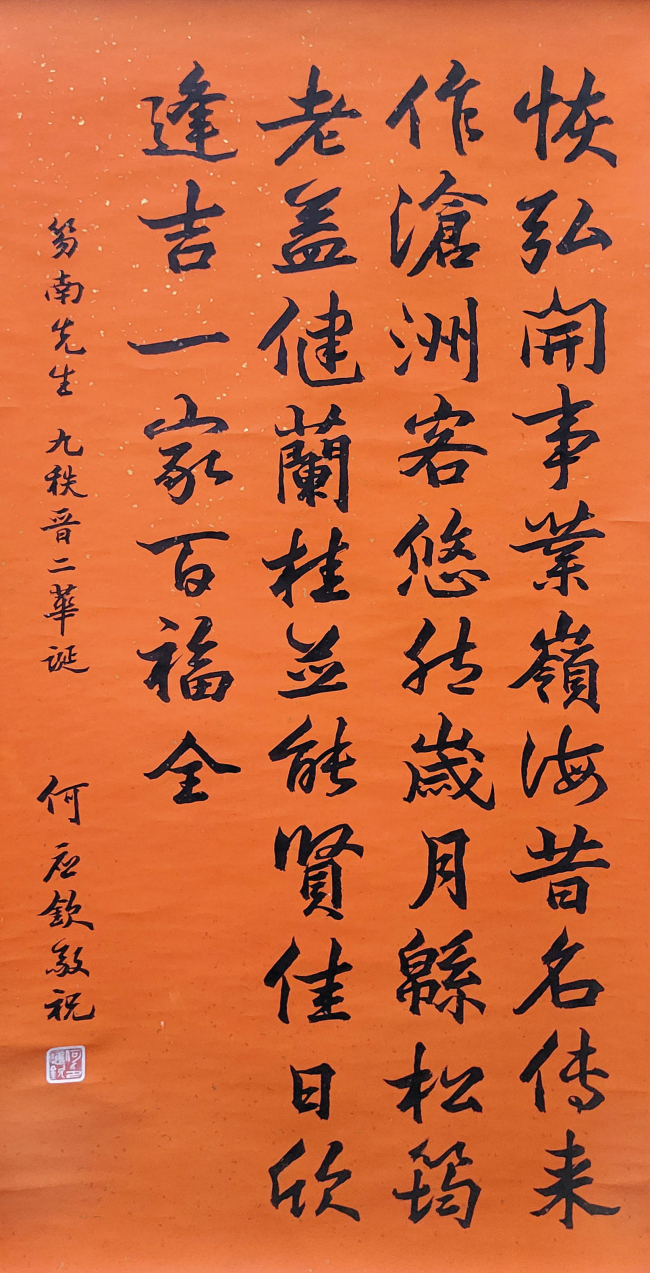 恢弘開事業嶺海昔名传来
作滄洲客悠然歲月緜松筠
老益健蘭桂並能賢佳日欣
逢吉一家百福全
芴南先生 九秩晋二華誕
何应欽敬祝
何應欽